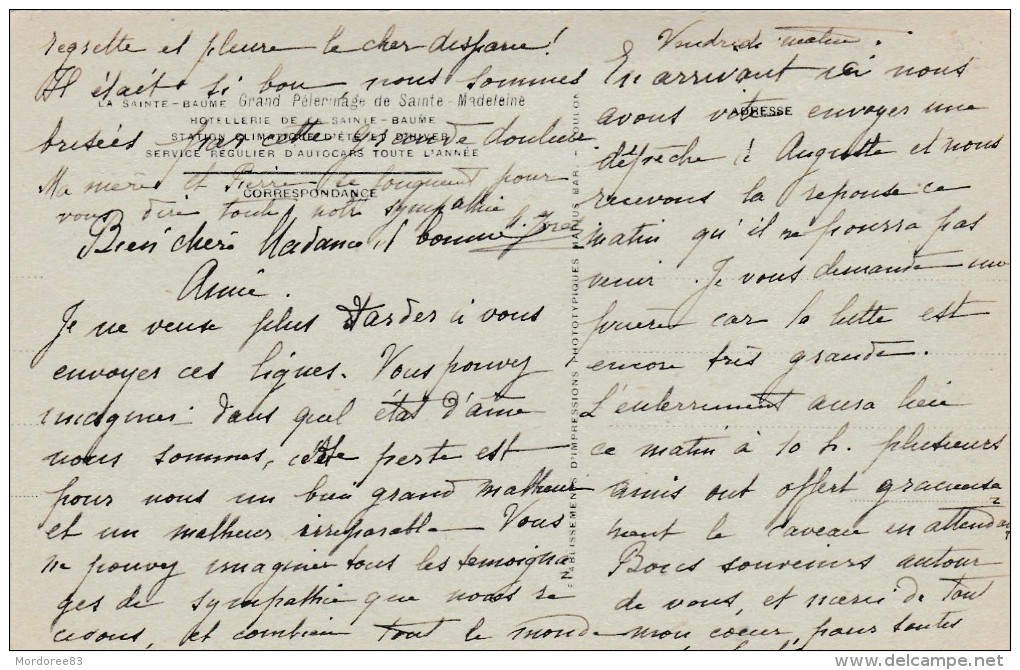 regrette et pleure le cher disparu!
Il était si bon, nous sommes
LA SAINTE-BAUME Grand Pèlerinage de Sainte-Madeleine
HOTELLERIE DE LA SAINTE-BAUME
brisées par cette grande douleur
STATION CLIMATIQUE D'ÉTÉ ET D'HIVER
SERVICE RÉGULIER D'AUTOCARS TOUTE L'ANNÉE
Ma mère et Pierre se joignent pour
CORRESPONDANCE
vous dire toute notre sympathie
Bien chère Madame et bonne
Amie.
Je ne veux plus tarder à vous
envoyer ces lignes. Vous pouvez
imaginer dans quel état d'âme
nous sommes, cette perte est
pour nous un bien grand malheur
et un malheur irréparable Vous
ne pouvez imaginer tous les témoigna
ges de sympathie que nous re
cevons, et combien tout le monde
ETABLISSEMENTS D'IMPRESSIONS PHOTOTYPIQUES MARIUS BAR - TOULON
Vendredi matin.
En arrivant ici nous
ADRESSE
avons vite envoyer une
dépêche à Auguste et nous
recevons la reponse ce
matin qu'il ne pourra pas
venir. Je vous demande une
prière car la lutte est
encore très grande.
L'enterrement aura lieu
ce matin à 10 h. plusieurs
amis ont offert gracieuse
ment le caveau en attendant
Bons souvenirs autour
de vous, et merci de tout
mon coeur, pour toutes
Mordoree83
© delcampe.net